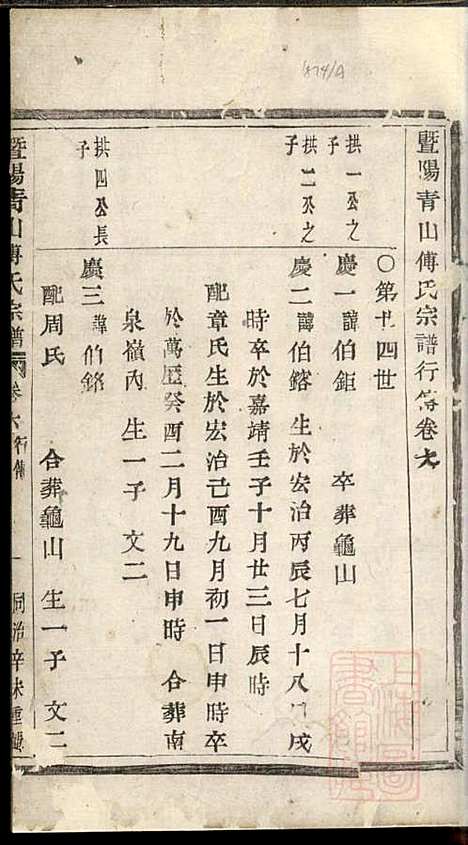 1474/A
暨陽青山傅氏宗譜行傳卷六
○第廿四世
拱一公之子
慶一諱伯鉅 卒葬龜山
拱二公之子
慶二諱伯鎔 生於宏治丙辰七月十八日戌
時卒於嘉靖壬子十月廿三日辰時
配章氏生於宏治己酉九月初一日申時卒
於萬歷癸酉二月十九日申時 合葬南
泉嶺內 生一子 文二
拱四公長子
慶三諱伯銘
配周氏 合葬龜山 生一子 文二
暨陽青山傅氏宗譜 卷六行傳 一 同治辛未重鐫
上海圖書館藏